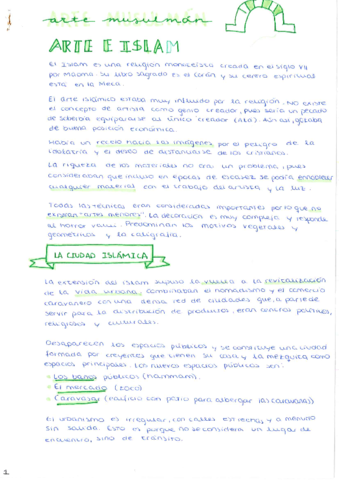 arte musulmán
ARTE E ISLAM
El Islam es una religión monoteísta creada en el siglo VII
por Mahoma. Su libro sagrado es el Corán y su centro espiritual
está en la Meca.
El arte islámico estaba muy influido por la religión. No existe
el concepto de artista como genio creador, pues sería un pecado
de soberbia equipararse al único creador (Alá). Aún así, gozaba
de buena posición económica.
Había un rechazo hacia las imágenes por el peligro de la
idolatría y el deseo de distanciarse de los cristianos.
La riqueza de los materiales no era un problema, pues
consideraban que incluso en épocas de escasez se podía ennoblecer
cualquier material con el trabajo del artista y la luz.
Todas las técnicas eran consideradas importantes por lo que no
existían "artes menores". La decoración es muy compleja y responde
al horror vacui. Predominan los motivos vegetales y
geométricos y la caligrafía.
LA CIUDAD ISLÁMICA
La extensión del Islam supuso la vuelta a la revitalización
de la vida urbana. Combinaban el nomadismo y el comercio
caravanero con una densa red de ciudades que, a parte de
servir para la distribución de productos, eran centros políticos,
religiosos y culturales.
Desaparecen los espacios públicos y se constituye una ciudad
formada por creyentes que tienen su casa y la mezquita como
espacios principales. Los nuevos espacios públicos son:
Los baños públicos (hammam).
El mercado (zoco)
Caravasar (edificio con patio para albergar las caravanas)
El urbanismo es irregular, con calles estrechas y a menudo
sin salida. Esto es porque no se considera un lugar de
encuentro, sino de tránsito.
1